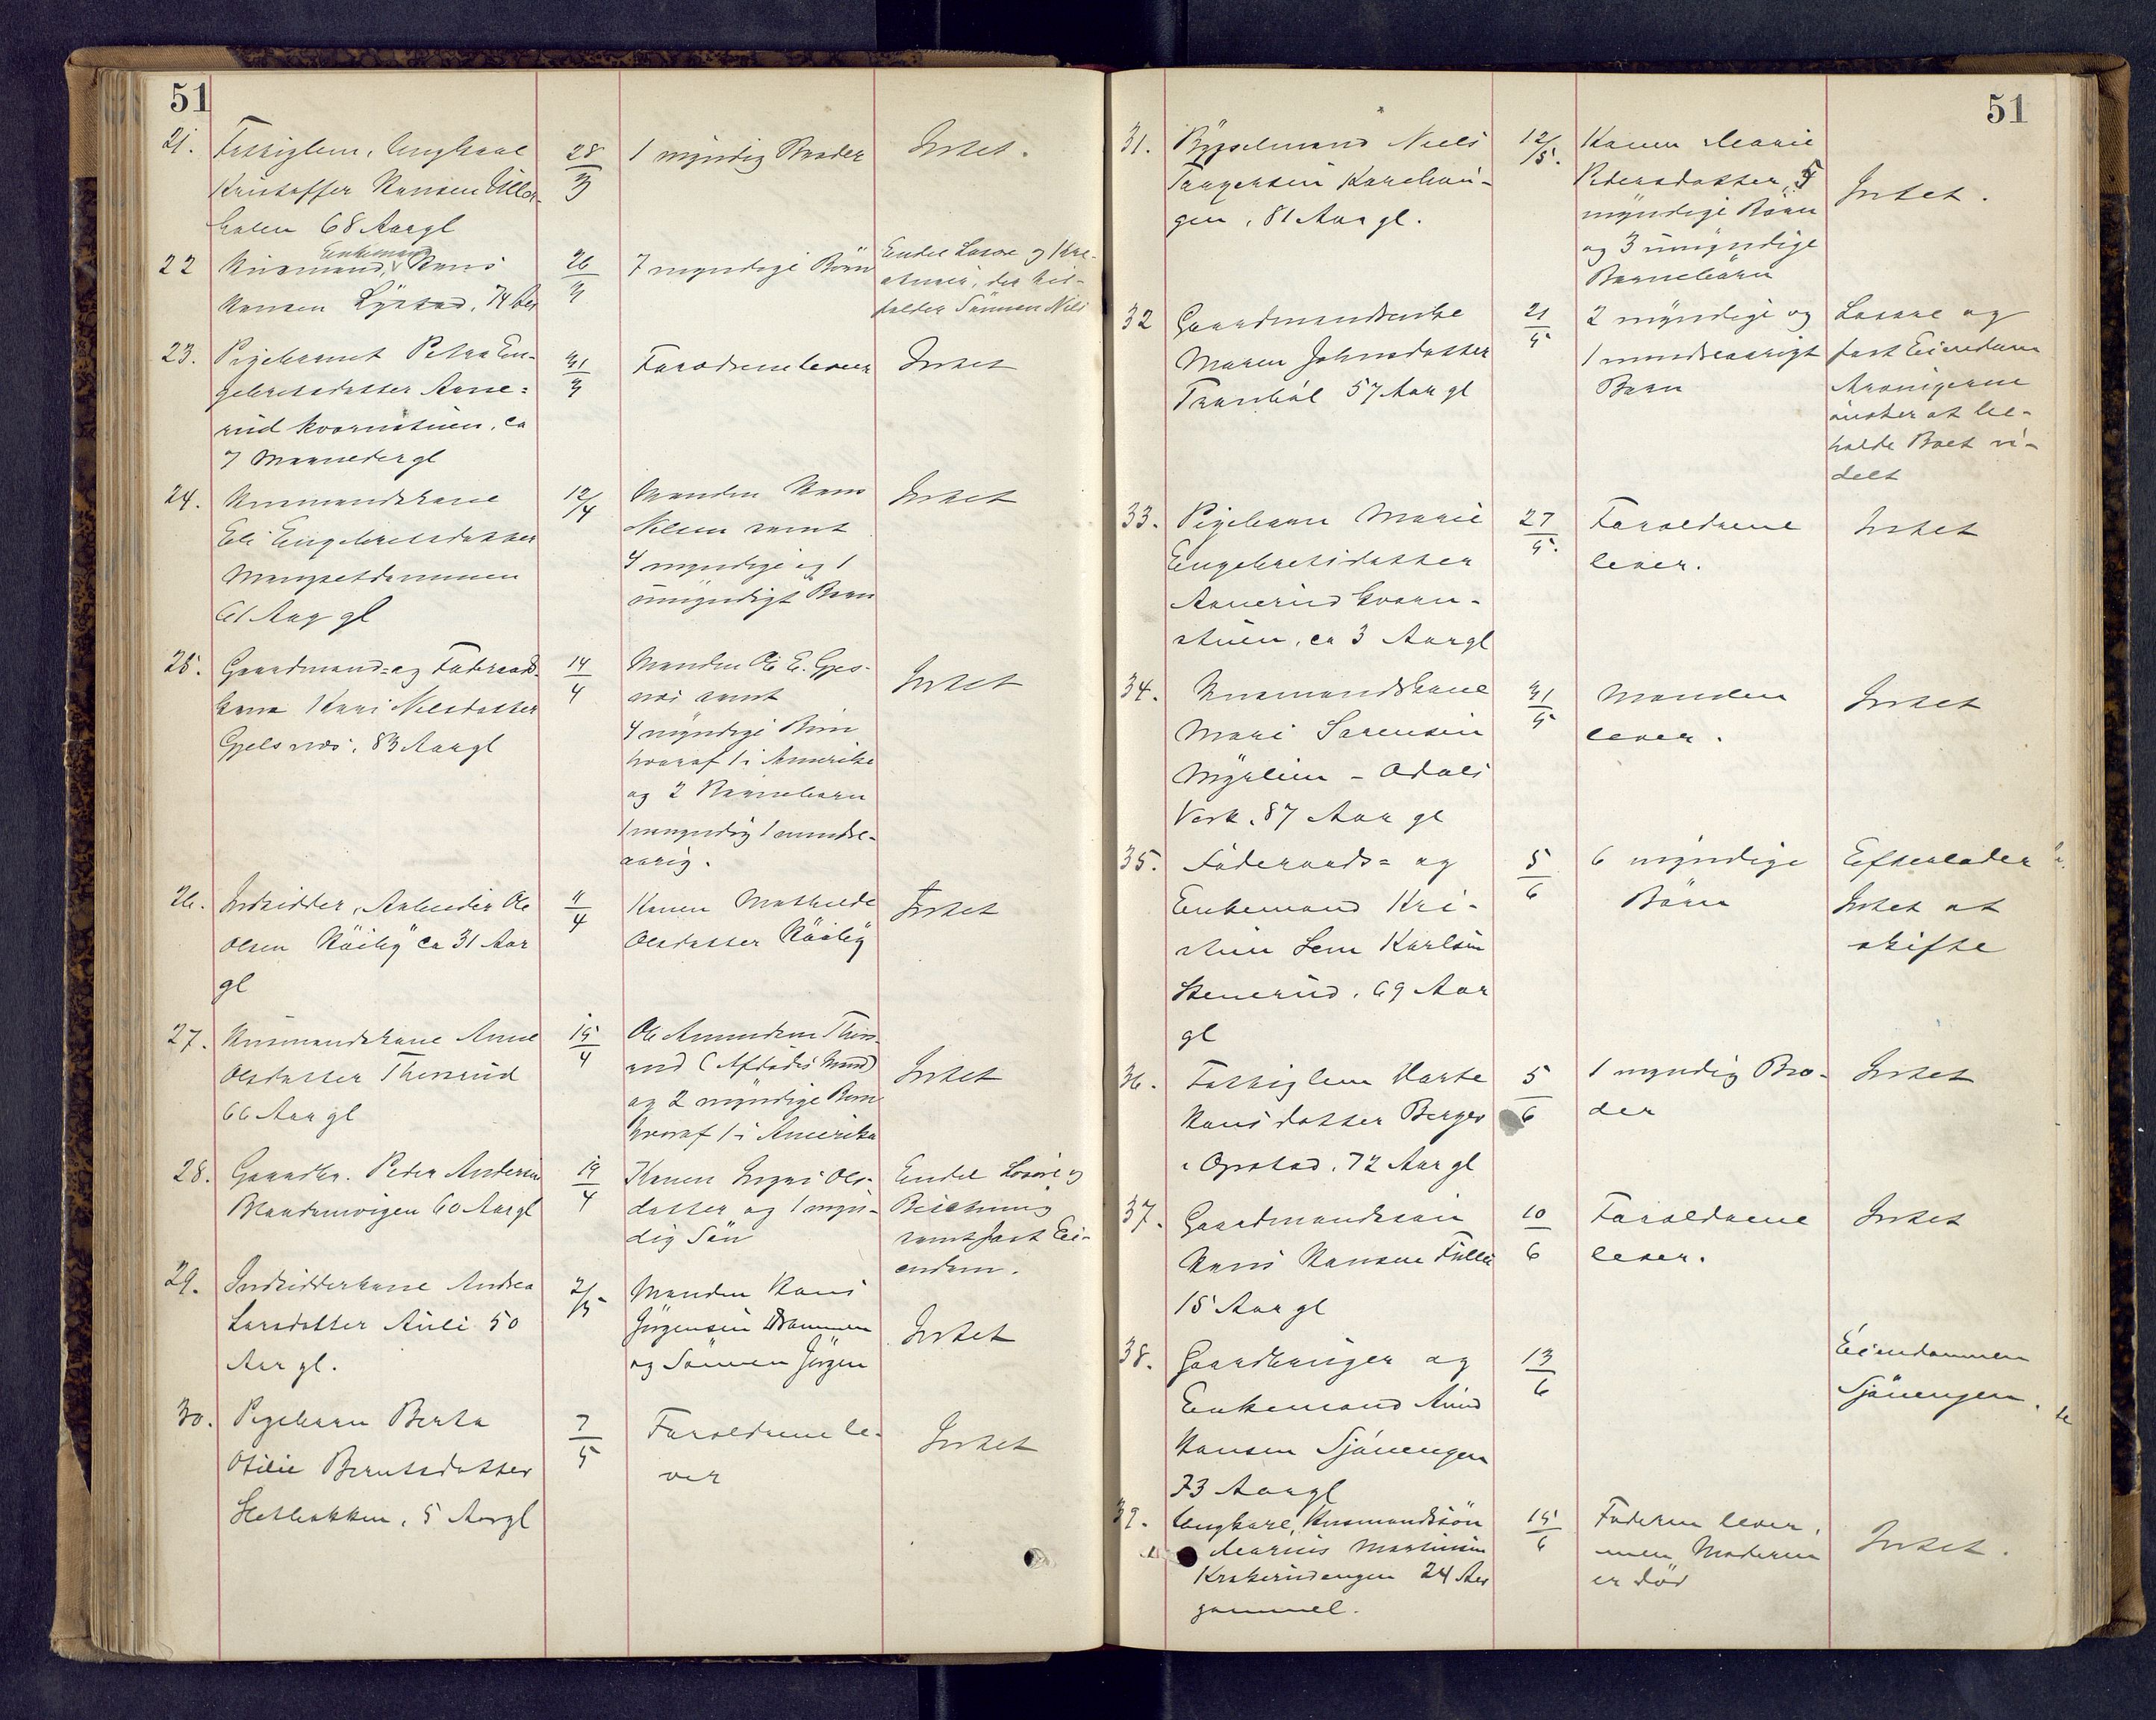 51
21.
Fattiglem, Ungkarl
Kristoffer Hansen
holen 68 Aar gl
28/3
1 myndig Broder
Intet.
22
Enkemand
Husmand, Hans
Hansen Lystad, 74 Aar
26/3
7 myndige Børn
Endel Løsøre og Kre-
aturer, der til-
falder Sønnen Nils
23.
Pigebarnet Petra En-
gebretsdatter Arne-
rud kvernstuen, ca
7 Maaneder gl
31/3
Forældrene lever
Intet
24.
Husmandskone
Eli Engebretsdatter
Mangsetdammen
61 Aar gl
12/4
Manden Hans
Nilsen samt
4 myndige og 1
umyndigt Barn
Intet
25.
Gaardmand- og Føderaads-
kone Kari Nilsdatter
Gjelsnes, 83 Aar gl
14/4
Manden Ole E. Gjels-
nes samt
4 myndige Børn
hvoraf 1 i Amerika
og 2 Børnebørn
1 umyndig 1 mindre-
aarig.
Intet
26.
Inderst, Arbeider Ole
Olsen ca 31 Aar
gl
11/4
Konen Mathilde
Olsdatter
Intet
27.
Husmandskone Anne
Olsdatter Thorsrud
66 Aar gl
15/4
Ole Amundsen Thors-
rud (Afdødes Mand)
og 2 myndige Børn
hvoraf 1 i Amerika
Intet
28.
Gaardbr. Peder Andersen
60 Aar gl
19/4
Konen Ingri Ols-
datter og 1 myn-
dig Søn
Endel Løsøre og
Besetning
samt fast Ei-
endom.
29.
Andrea
Larsdatter Auli 50
Aar gl.
2/5
Manden Hans
Jørgensen
og Sønnen Jørgen
Intet
30.
Pigebarn Berta
Otilie Berntsdatter
Sletbakken, 5 Aar gl
7/5
Forældrene le-
ver
Intet
51
31.
Bygselmand Niels
Tragersen
gen, 81 Aar gl.
12/5.
Konen Marie
Pedersdatter, 5
myndige Børn
og 3 umyndige
Børnebørn
Intet.
32
Gaardmandsenke
Maren Johnsdatter
Tronbøl 57 Aar gl
21/5
2 myndige og
1 mindreaarigt
Barn
Løsøre og
fast Eiendom
Arvingerne
ønsker at be-
holde Boet u-
delt
33.
Pigebarn Marie
Engebretsdatter
Arnerud kvern-
stuen, ca 3 Aar gl
27/5.
Forældrene
lever.
Intet
34.
Husmandskone
Mari Sørensen
Myrlien - Odals
Verk. 87 Aar gl
31/5
Manden
lever.
Intet
35.
Føderaads- og
Enkemand Kri-
stian Lem Karlsen
Stenerud, 69 Aar
gl
5/6
6 myndige
Børn
Efterlader
Intet at
skifte
36.
Fattiglem Marte
Hansdatter Berger
i Opstad, 72 Aar gl
5/6
1 myndig Bro-
der
Intet
37.
Gaardmandssøn
Hans Hansen Fulu
15 Aar gl
10/6
Forældrene
lever.
Intet
38.
Gaardbruger og
Enkemand Amund
Hansen Sjøvengen
73 Aar gl
13/6
Eiendommen
Sjøvengen.
39.
Ungkarl, Husmandssøn
Marius Martinsen
Krokerudengen 24 Aar
gammel.
15/6
Faderen lever,
men Moderen
er død
Intet.